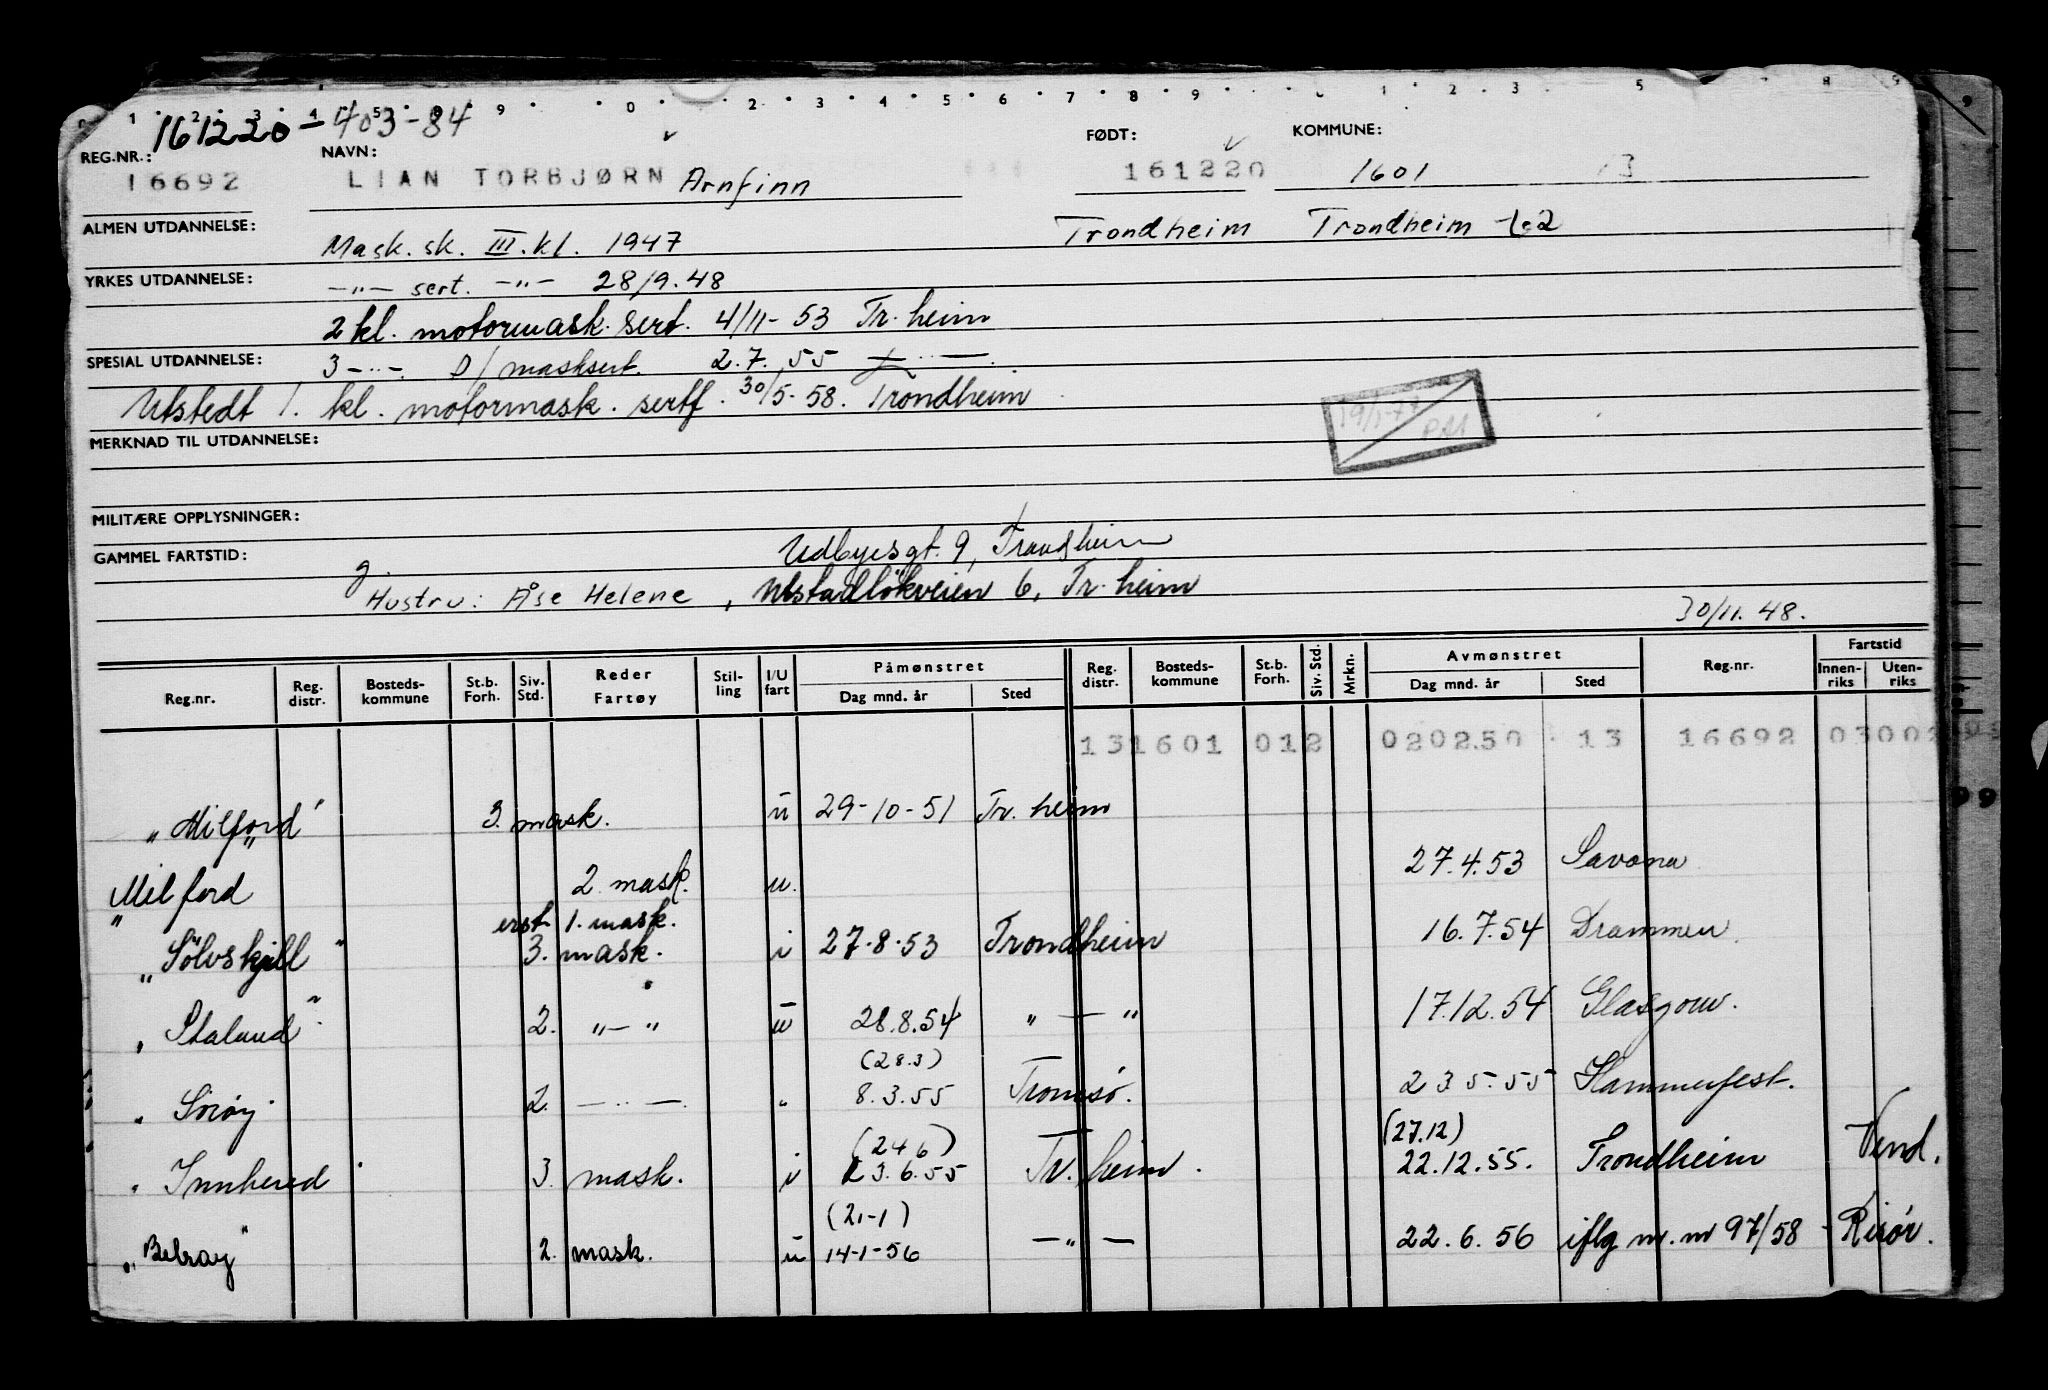 161220-403-84
REG.NR.: NAVN: FØDT: KOMMUNE:
16692 LIAN TORBJØRN Arnfinn 161220 1601 13
ALMEN UTDANNELSE: Mask. sk. III. kl. 1947 Trondheim Trondheim
YRKES UTDANNELSE: —"— sert. —"— 28/9.48
2 kl. motormask. sert. 4/11-53 Tr. heim
SPESIAL UTDANNELSE: 3 —"—. D/masksert. 2.7.55 —"—.
Utstedt 1. kl. motormask. sertf. 30/5-58. Trondheim
MERKNAD TIL UTDANNELSE:
MILITÆRE OPPLYSNINGER:
GAMMEL FARTSTID: Udbyesgt. 9, Trondheim
g. Hustru: Åse Helene, Ulstadløkveien 6, Tr. heim
30/11.48.
Reg.nr. Reg. distr. Bosteds-kommune St.b. Forh. Siv. Std. Reder Fartøy Stil-ling I/U fart Påmønstret Dag mnd. år Sted Reg. distr. Bosteds-kommune St.b. Forh. Siv. Std. Mrkn. Avmønstret Dag mnd. år Sted Reg.nr. Fartstid Innen-riks Uten-riks
131601 012 020250 13 16692
"Milford" 3. mask. u 29-10-51 Tr. heim
Milford 2. mask. u. 27.4.53 Savona
erst. 1. mask.
"Sölvskjell" 3. mask. i 27.8.53 Trondheim 16.7.54 Drammen
"Staland" 2. "—" u 28.8.54 "—" 17.12.54 Glasgow.
(28.3)
" Sörøy. 2. —"—. " 8.3.55 Tromsö. 23.5.55 Hammerfest.
(24 6) (27.12)
" Innhered 3. mask. i 23.6.55 Tr. heim. 22.12.55. Trondheim Vend.
(21-1)
"Belray" 2. mask. u 14-1-56 —"— 22.6.56 iflg m.m 97/58 - Risör.